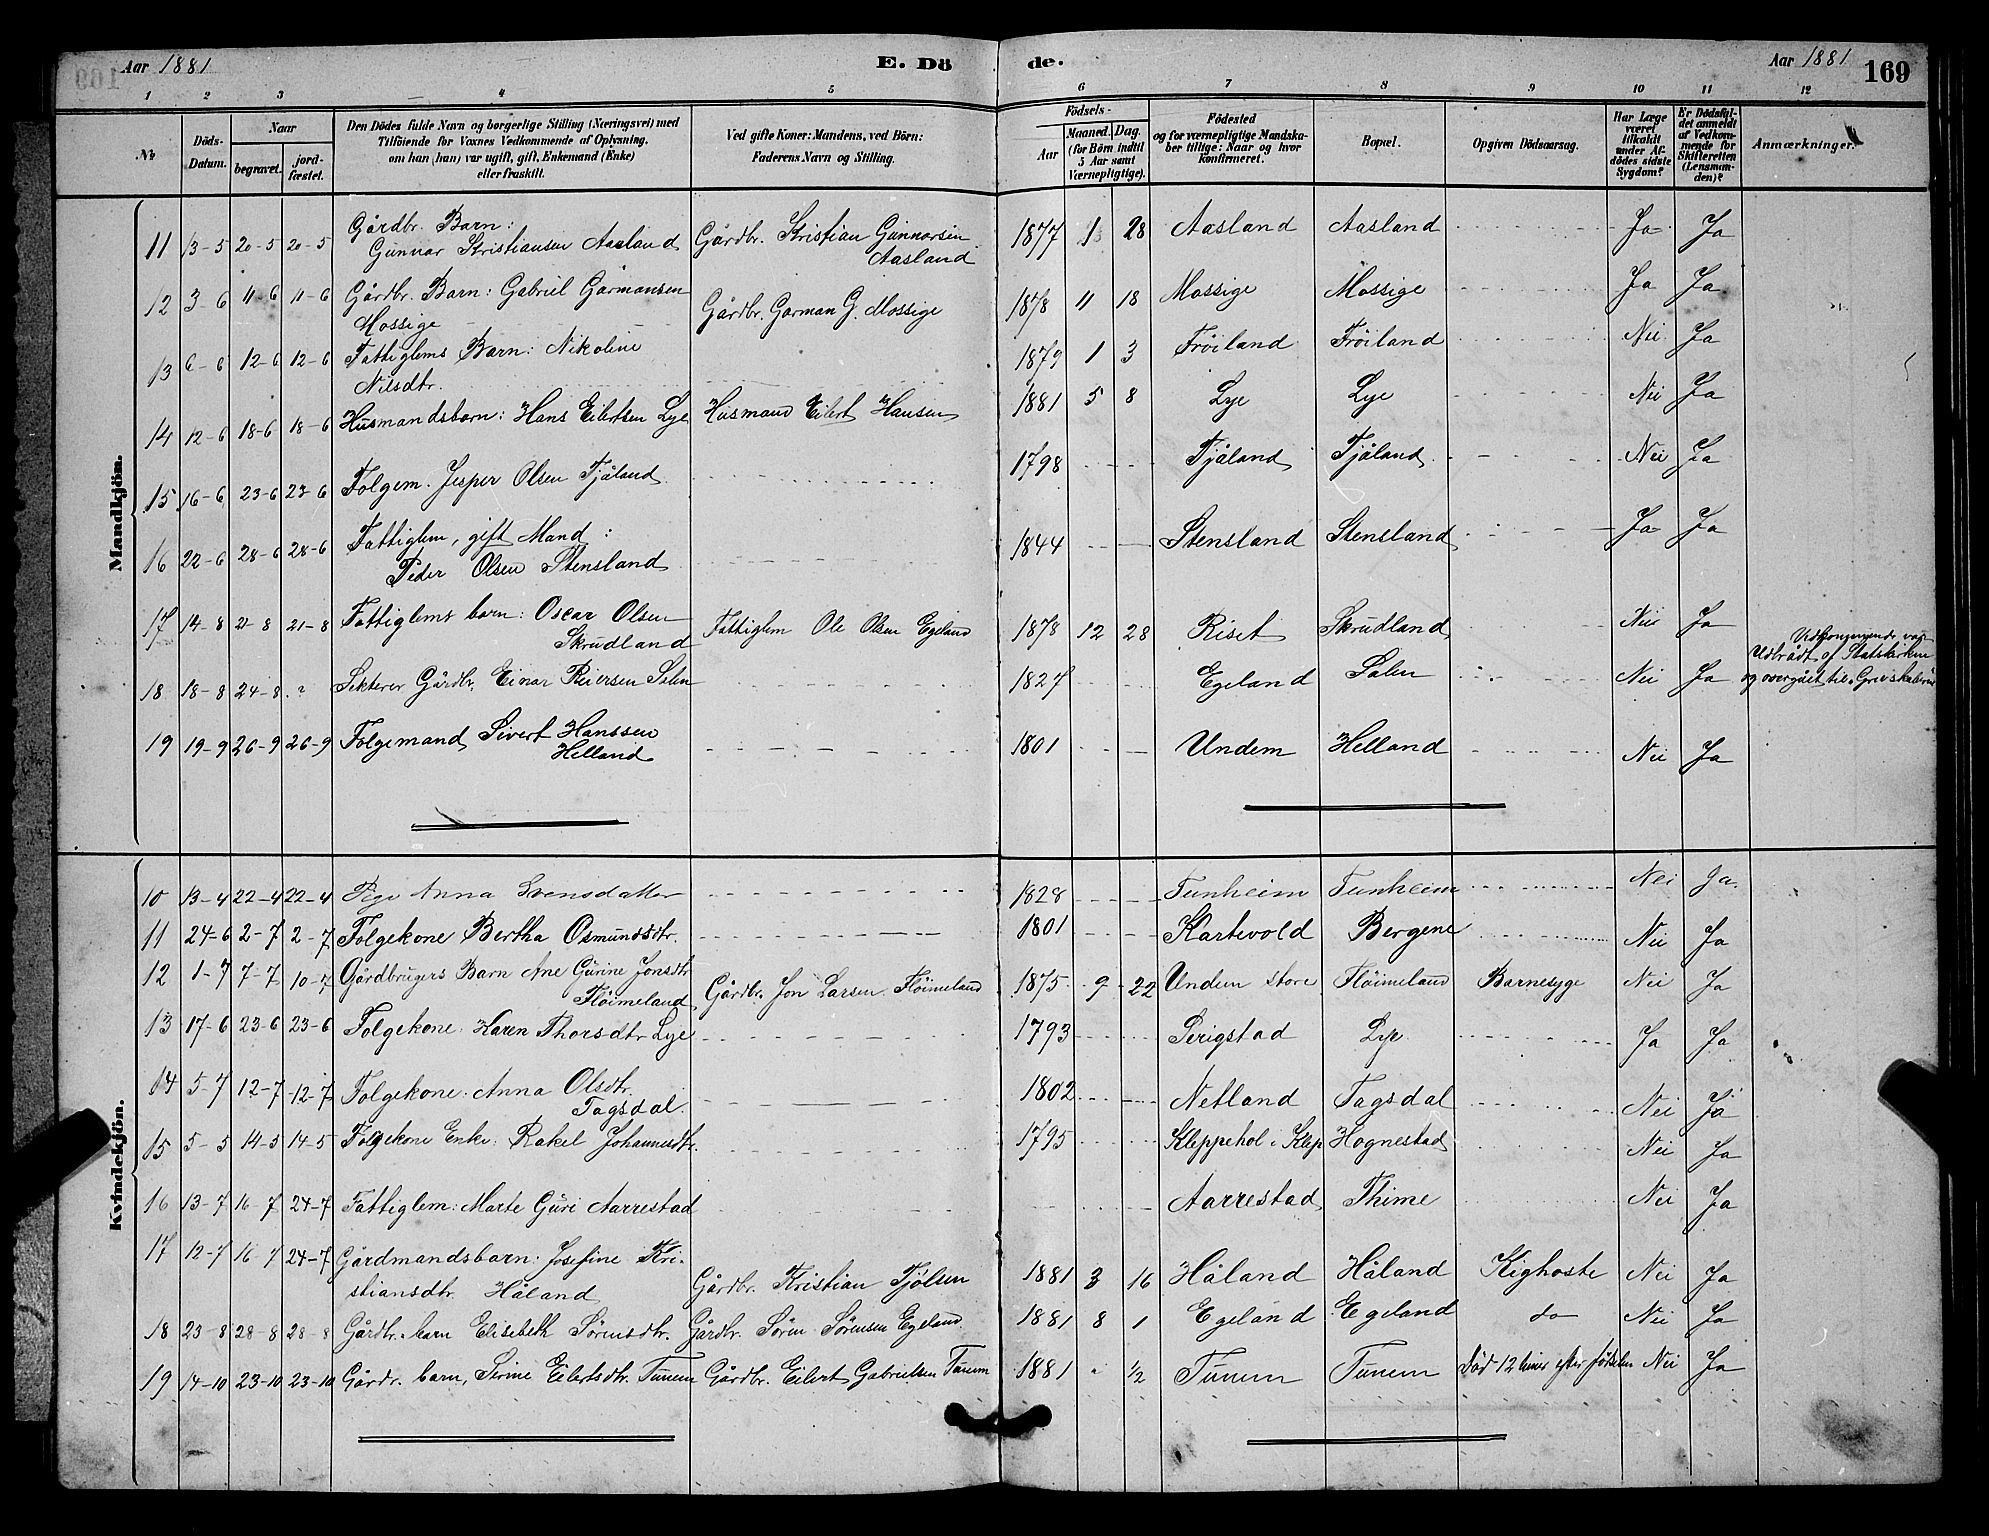 Aar 1881 E. Dö de. Aar 1881 169
1 2 3 4 5 6 7 8 9 10 11 12
No
Döds-Datum.
Naar
begravet.
jord-fæstet.
Den Dödes fulde Navn og borgerlige Stilling (Næringsvei) med
Tilföiende for Voxnes Vedkommende af Oplysning,
om han (hun) var ugift, gift, Enkemand (Enke)
eller fraskilt.
Ved gifte Koner: Mandens, ved Börn:
Faderens Navn og Stilling.
Födsels-
Aar
Maaned. Dag.
(for Börn indtil
5 Aar samt
Værnepligtige).
Födested
og for værnepligtige Mandska-
ber tillige: Naar og hvor
Konfirmeret.
Bopæl.
Opgiven Dödsaarsag.
Har Læge
været
tilkaldt
under Af-
dödes sidste
Sygdom?
Er Dödsfal-
det anmeldt
af Vedkom-
mende for
Skifteretten
(Lensman-
den)?
Anmærkninger.
Mandkjön.
11 13-5 20-5 20-5 Gårdbr. Barn:
Gunnar Kristiansen Aasland Gårdbr. Kristian Gunnarsen
Aasland 1877 1 28 Aasland Aasland Ja Ja
12 3-6 11-6 11-6 Gårdbr. Barn: Gabriel Gårmansen
Mossige Gårdbr. Gorman G. Mossige 1878 11 18 Mossige Mossige Ja Ja
13 6-6 12-6 12-6 Fattiglems Barn: Nikoline
Nilsdtr. 1879 1 3 Fröiland Fröiland Nei Ja
14 12-6 18-6 18-6 Husmandsbarn: Hans Eilertsen Lye Husmand Eilert Hansen 1881 5 8 Lye Lye Nei Ja
15 16-6 23-6 23-6 Folgem. Jesper Olsen Tjåland 1798 Tjåland Tjåland Nei Ja
16 22-6 28-6 28-6 Fattiglem, gift Mand:
Peder Olsen Stensland 1844 Stensland Stensland Ja Ja
17 14-8 21-8 21-8 Fattiglems barn: Oscar Olsen
Skrudland Fattiglem Ole Olsen Egeland 1878 12 28 Riset Skrudland Nei Ja
18 18-8 24-8 ? Sekterer Gårdbr. Einar Reiersen Selen 1827 Egeland Salen Nei Ja Vedkommende var
Udtrådt af Statskirken
og overgået til
19 19-9 26-9 26-9 Folgemand Sivert Hanssen
Helland 1801 Undem Helland Nei Ja
Kvindekjön.
10 13-4 22-4 22-4 Pige Anna Svensdatter 1828 Tunheim Tunheim Nei Ja
11 24-6 2-7 2-7 Folgekone Bertha Osmundsdtr. 1801 Kartevold Bergene Nei Ja
12 1-7 7-7 10-7 Gårdbrugers Barn Ane Gurine Jonsdtr
Flöimeland Gårdbr. Jon Larsen Flöimeland 1875 9 22 Undem store Flöimeland Barnesyge Nei Ja
13 17-6 23-6 23-6 Folgekone Karen Thorsdtr Lye 1793 Serigstad Lye Ja Ja
14 5-7 12-7 12-7 Folgekone Anna Olsdtr.
Tagsdal. 1802 Netland Tagsdal Nei Ja
15 5-5 14-5 14-5 Folgekone Enke: Rakel Johannesdtr. 1795 Kleppehol i Klep Hognestad Nei Ja
16 13-7 16-7 24-7 Fattiglem: Marte Guri Aarrestad Aarrestad Thime Nei Ja
17 12-7 16-7 24-7 Gårdmandsbarn: Josefine Kri-
stiansdtr. Håland Gårdbr. Kristian Tjölsen 1881 3 16 Håland Håland Kighoste Nei Ja
18 23-8 28-8 28-8 Gårdbr. barn Elisebeth Sörensdtr. Gårdbr. Sören Sörensen Egeland 1881 8 1 Egeland Egeland do Nei Ja
19 14-10 23-10 23-10 Gårdr. barn, Serine Eilertsdtr. Tunem Gårdbr. Eilert Gabrielsen Tunem 1881 " ½ Tunem Tunem Död 12 timer efter Födselen Nei Ja